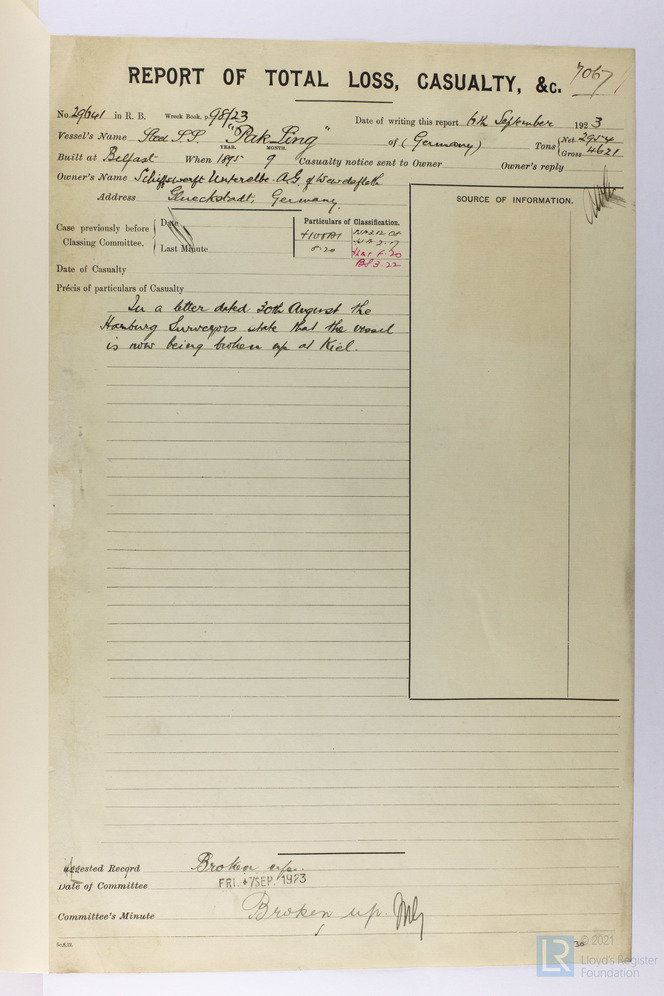 7067
REPORT OF TOTAL LOSS, CASUALTY, &c.
No. 29641 in R. B. Wreck Book, p. 98/23
Date of writing this report 6th September 1923
Vessel's Name Steel S.S. "Pak Ling" of (Germany) Tons { Net 2954 Gross 4621
Built at Belfast When YEAR. 1895 MONTH. 9 Casualty notice sent to Owner Owner's reply
Owner's Name Schiffswerft Unterelbe A.G. of
Address Glueckstadt, Germany.
SOURCE OF INFORMATION.
Case previously before Classing Committee. { Date Last Minute
Particulars of Classification.
+100A1
8.20
BS 3.22
Date of Casualty
Précis of particulars of Casualty
In a letter dated 30th August the
Hamburg Surveyors state that the vessel
is now being broken up at Kiel.
Suggested Record Broken up.
Date of Committee FRI. 7 SEP. 1923
Committee's Minute Broken up.
30
© 2021
LR Lloyd's Register
Foundation